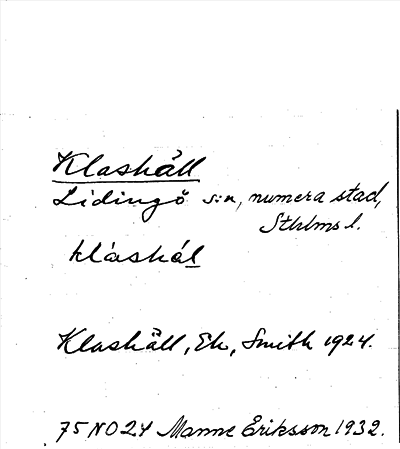 Klashäll
Lidingö s:n, numera stad,
Sthlms l.
klàshál
Klashäll, Ek, Smith 1924.
75 NO 24 Manne Eriksson 1932.